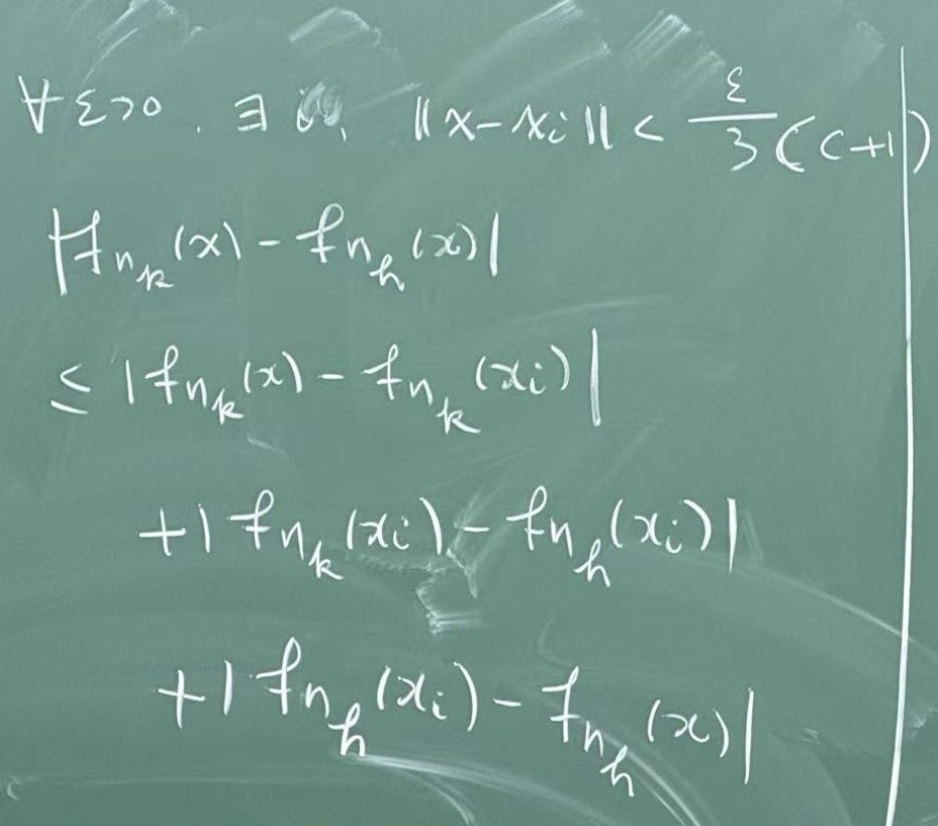 ∀ ε>0 . ∃ i, ‖x-xᵢ‖ < ε/3(C+1)
|f_{n_k}(x) - f_{n_h}(x)|
≤ |f_{n_k}(x) - f_{n_k}(xᵢ)|
+| f_{n_k}(xᵢ) - f_{n_h}(xᵢ)|
+| f_{n_h}(xᵢ) - f_{n_h}(x)|